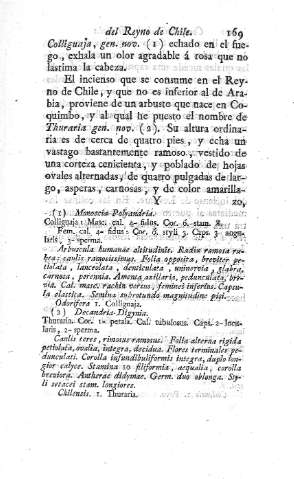 del Reyno de Chile. 169
Colliguaja, gen. nov. (1) echado en el fue-
go, exhala un olor agradable á rosa que no
lastima la cabeza.
El incienso que se consume en el Rey-
no de Chile, y que no es inferior al de Ara-
bia, proviene de un arbusto que nace en Co-
quimbo, y al qual he puesto el nombre de
Thuraria gen. nov. (2). Su altura ordina-
ria es de cerca de quatro pies, y echa un
vastago bastantemente ramoso, vestido de
una corteza cenicienta, y poblado de hojas
ovales alternadas, de quatro pulgadas de lar-
go, asperas, carnosas, y de color amarilla-
Y zo,
(1) Monoecia Polyandria.
Colliguaja: Masc. cal. 4- fidus. Cor. 0. stam. 8.
Fem. cal. 4- fidus: Cor. 0. styli 3. Caps. 3- angu-
laris, 3- sperma.
Arbuscula humanae altitudinis. Radix ramosa ru-
bra: caulis ramosissimus. Folia opposita, breviter pe-
tiolata, lanceolata, denticulata, uninervia, glabra,
carnosa, perennia. Amenta axillaria, pedunculata, bre-
via. Cal. masc. rachin versus, feminei inferius. Capsu-
la elastica. Semina subrotunda magnitudine pisi.
Odorifera 1. Colliguaja.
(2) Decandria Digynia.
Thuraria. Cor. 1- petala. Cal. tubulosus. Caps. 2- locu-
laris, 2- sperma.
Caulis teres, ramosus. Folia alterna rigida
petiolata, ovalia, integra, decidua. Flores terminales pe-
dunculati. Corolla infundibuliformis integra, duplo lon-
gior calyce. Stamina 10 filiformia, aequalia, corolla
breviora. Antherae didymae. Germ. duo oblonga. Sty-
li setacei stam. longiores.
Chilensis. 1. Thuraria.